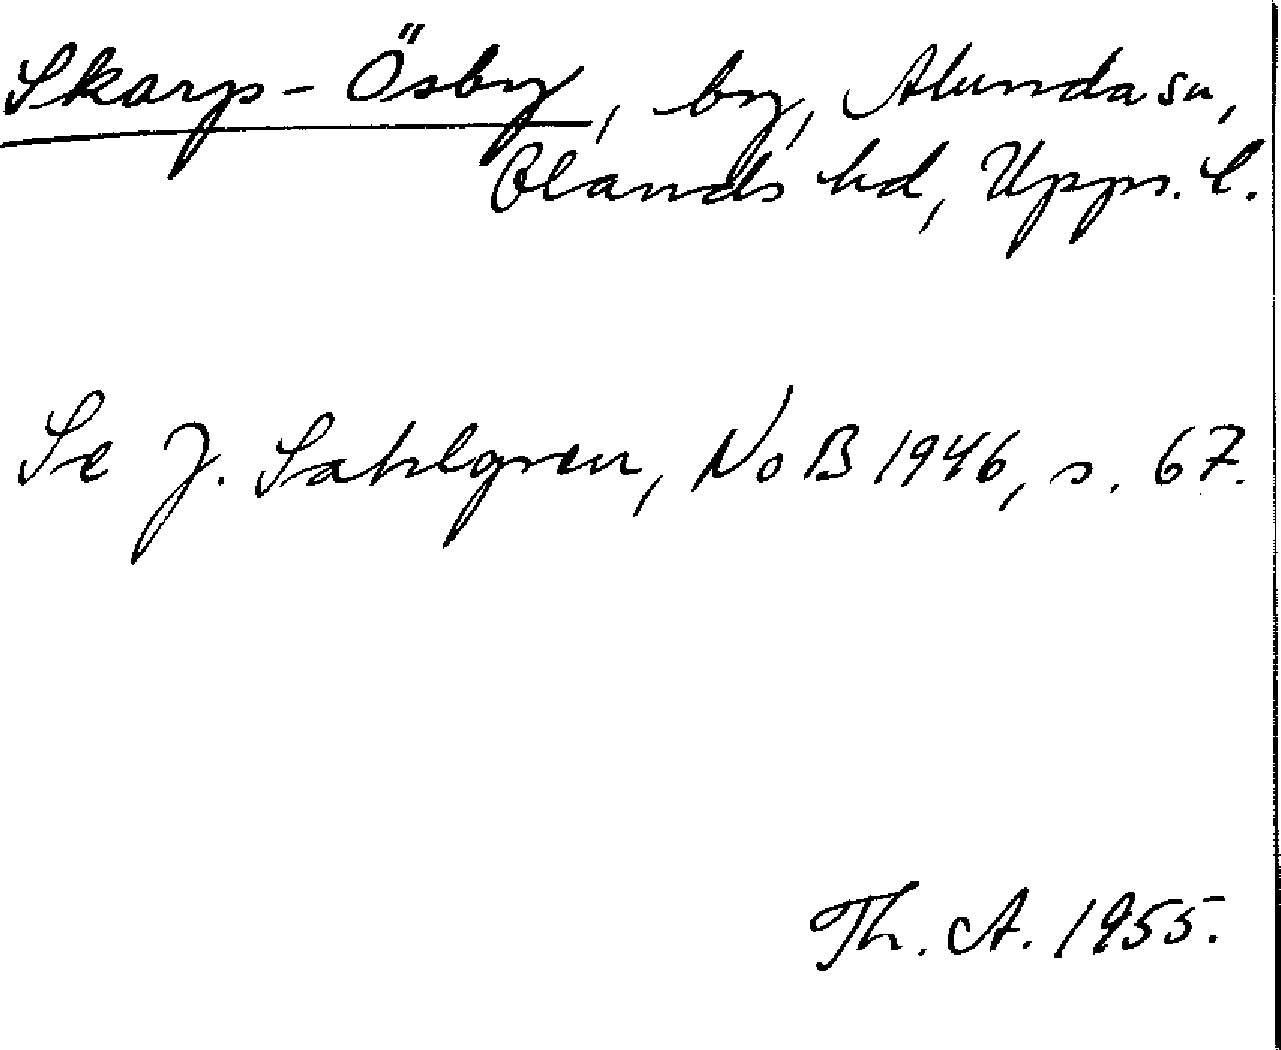 Skarp-Ösby, by, Alunda sn,
Olands hd, Upps. l.
Se J. Sahlgren, NoB 1946, s. 67.
Th. A. 1955.